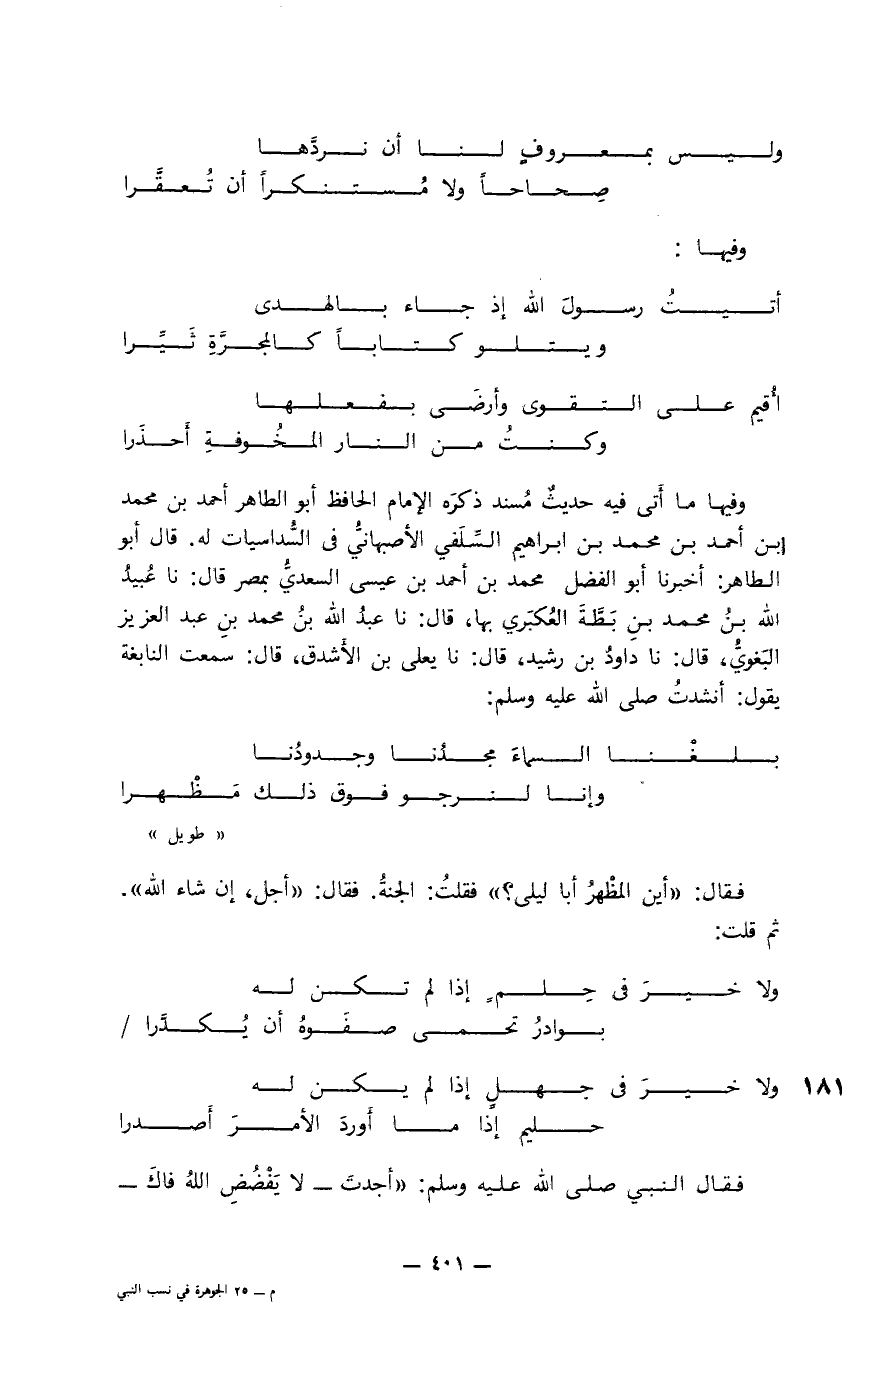 وليس بمعروفٍ لنا أن نردَّها
صِحاحاً ولا مُستنكراً أن تُعقَّرا
وفيها :
أتيتُ رسولَ الله إذ جاء بالهدى
ويتلو كتاباً كالمجرَّةِ ثَيِّرا
أُقيم على التقوى وأرضَى بفعلها
وكنتُ من النار المخُوفةِ أَحذَرا
وفيها ما أَتى فيه حديثٌ مُسند ذكرَه الإمام الحافظ أبو الطاهر أحمد بن محمد
إبن أحمد بن محمد بن ابراهيم السِّلَفي الأصبهانيُّ فى السُّداسيات له. قال أبو
الطاهر: أخبرنا أبو الفضل محمد بن أحمد بن عيسى السعديُّ بمصر قال: نا عُبيدُ
الله بنُ محمد بنِ بَطَّةَ العُكبَري بها، قال: نا عبدُ الله بنُ محمد بنِ عبد العزيز
البَغويُّ، قال: نا داودُ بن رشيد، قال: نا يعلى بن الأَشدق، قال: سمعت النابغة
يقول: أنشدتُ صلى الله عليه وسلم:
بلغْنا السماءَ مجدُنا وجدودُنا
وإنا لنرجو فوق ذلك مَظْهرا
« طويل »
فقال: «أين المظْهرُ أبا ليلى؟» فقلتُ: الجنةُ. فقال: «أجل، إن شاء الله».
ثم قلت:
ولا خيرَ فى حِلمٍ إذا لم تكن له
بوادرُ تحمى صفَوهُ أن يُكدَّرا /
١٨١ ولا خيرَ فى جهلٍ إذا لم يكن له
حليم إذَا ما أَوردَ الأمرَ أَصدرا
فقال النبي صلى الله عليه وسلم: «أجدتَ – لا يَفْضُضِ اللهُ فاكَ –
– ٤٠١ –
م – ٢٥ الجوهرة في نسب النبي